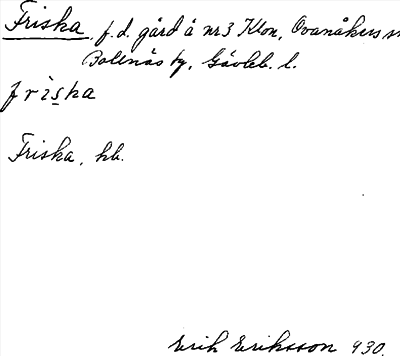 Friska, f.d. gård å nr 3 Klon, Ovanåkers sn
Bollnäs tg, Gävleb. l.
frìska
Friska, hb.
Erik Eriksson 930.